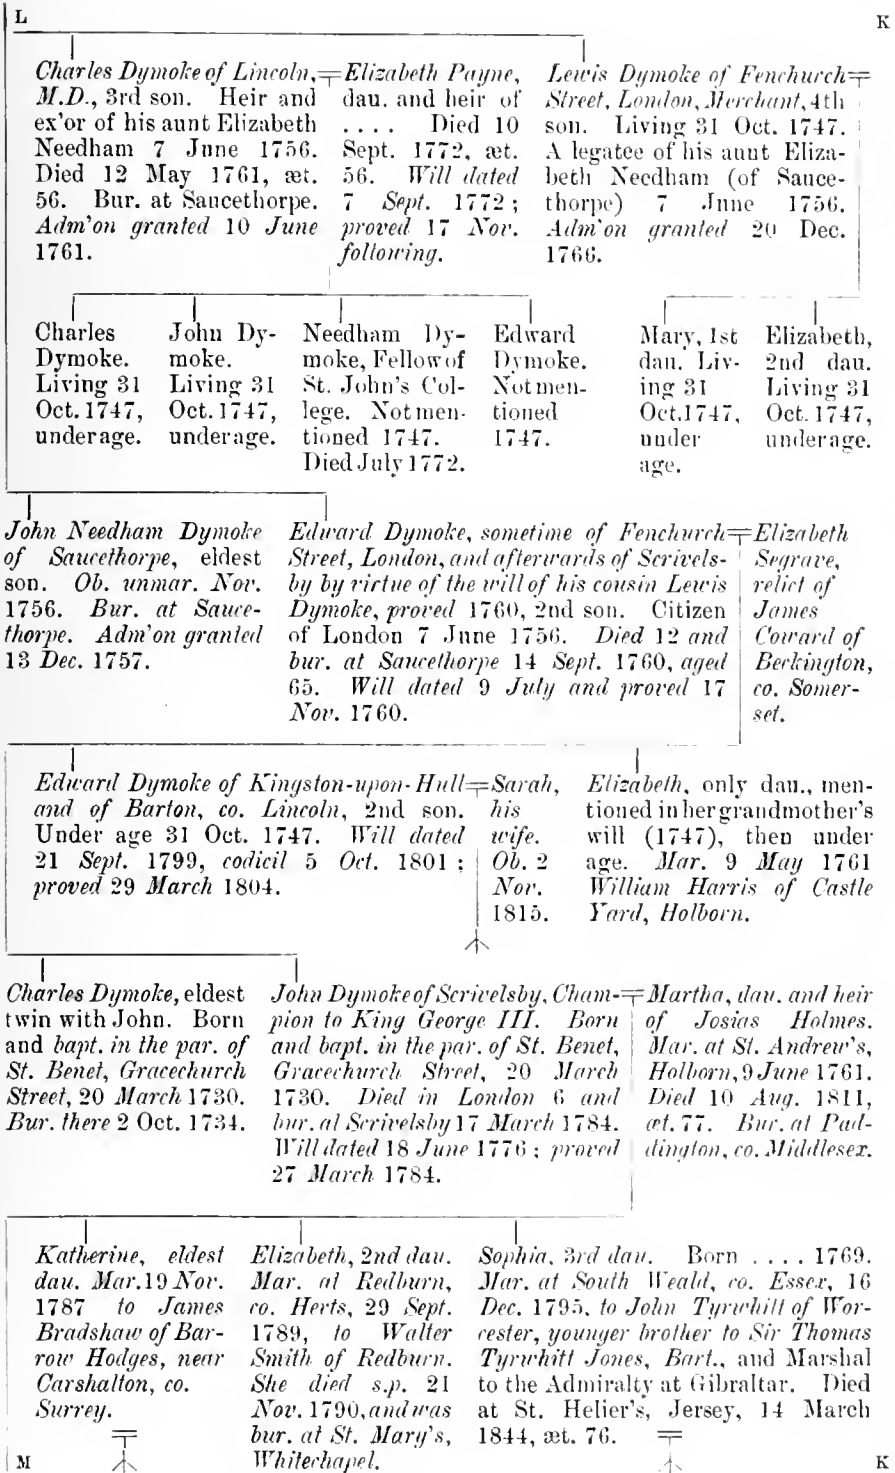 L
K
Charles Dymoke of Lincoln,
M.D., 3rd son. Heir and
ex'or of his aunt Elizabeth
Needham 7 June 1756.
Died 12 May 1761, æt.
56. Bur. at Saucethorpe.
Adm'on granted 10 June
1761.
Elizabeth Payne,
dau. and heir of
. . . . Died 10
Sept. 1772, æt.
56. Will dated
7 Sept. 1772;
proved 17 Nov.
following.
Lewis Dymoke of Fenchurch
Street, London, Merchant, 4th
son. Living 31 Oct. 1747.
A legatee of his aunt Eliza-
beth Needham (of Sauce-
thorpe) 7 June 1756.
Adm'on granted 20 Dec.
1766.
Charles
Dymoke.
Living 31
Oct. 1747,
under age.
John Dy-
moke.
Living 31
Oct. 1747,
under age.
Needham Dy-
moke, Fellow of
St. John's Col-
lege. Not men-
tioned 1747.
Died July 1772.
Edward
Dymoke.
Not men-
tioned
1747.
Mary, 1st
dau. Liv-
ing 31
Oct. 1747,
under
age.
Elizabeth,
2nd dau.
Living 31
Oct. 1747,
under age.
John Needham Dymoke
of Saucethorpe, eldest
son. Ob. unmar. Nov.
1756. Bur. at Sauce-
thorpe. Adm'on granted
13 Dec. 1757.
Edward Dymoke, sometime of Fenchurch
Street, London, and afterwards of Scrivels-
by by virtue of the will of his cousin Lewis
Dymoke, proved 1760, 2nd son. Citizen
of London 7 June 1756. Died 12 and
bur. at Saucethorpe 14 Sept. 1760, aged
65. Will dated 9 July and proved 17
Nov. 1760.
Elizabeth
Segrave,
relict of
James
Coward of
Berkington,
co. Somer-
set.
Edward Dymoke of Kingston-upon-Hull
and of Barton, co. Lincoln, 2nd son.
Under age 31 Oct. 1747. Will dated
21 Sept. 1799, codicil 5 Oct. 1801;
proved 29 March 1804.
Sarah,
his
wife.
Ob. 2
Nov.
1815.
Elizabeth, only dau., men-
tioned in her grandmother's
will (1747), then under
age. Mar. 9 May 1761
William Harris of Castle
Yard, Holborn.
Charles Dymoke, eldest
twin with John. Born
and bapt. in the par. of
St. Benet, Gracechurch
Street, 20 March 1730.
Bur. there 2 Oct. 1734.
John Dymoke of Scrivelsby, Cham-
pion to King George III. Born
and bapt. in the par. of St. Benet,
Gracechurch Street, 20 March
1730. Died in London 6 and
bur. at Scrivelsby 17 March 1784.
Will dated 18 June 1776; proved
27 March 1784.
Martha, dau. and heir
of Josias Holmes.
Mar. at St. Andrew's,
Holborn, 9 June 1761.
Died 10 Aug. 1811,
æt. 77. Bur. at Pad-
dington, co. Middlesex.
Katherine, eldest
dau. Mar. 19 Nov.
1787 to James
Bradshaw of Bar-
row Hodges, near
Carshalton, co.
Surrey.
Elizabeth, 2nd dau.
Mar. at Redburn,
co. Herts, 29 Sept.
1789, to Walter
Smith of Redburn.
She died s.p. 21
Nov. 1790, and was
bur. at St. Mary's,
Whitechapel.
Sophia, 3rd dau. Born . . . . 1769.
Mar. at South Weald, co. Essex, 16
Dec. 1795, to John Tyrwhitt of Wor-
cester, younger brother to Sir Thomas
Tyrwhitt Jones, Bart., and Marshal
to the Admiralty at Gibraltar. Died
at St. Helier's, Jersey, 14 March
1844, æt. 76.
M
K